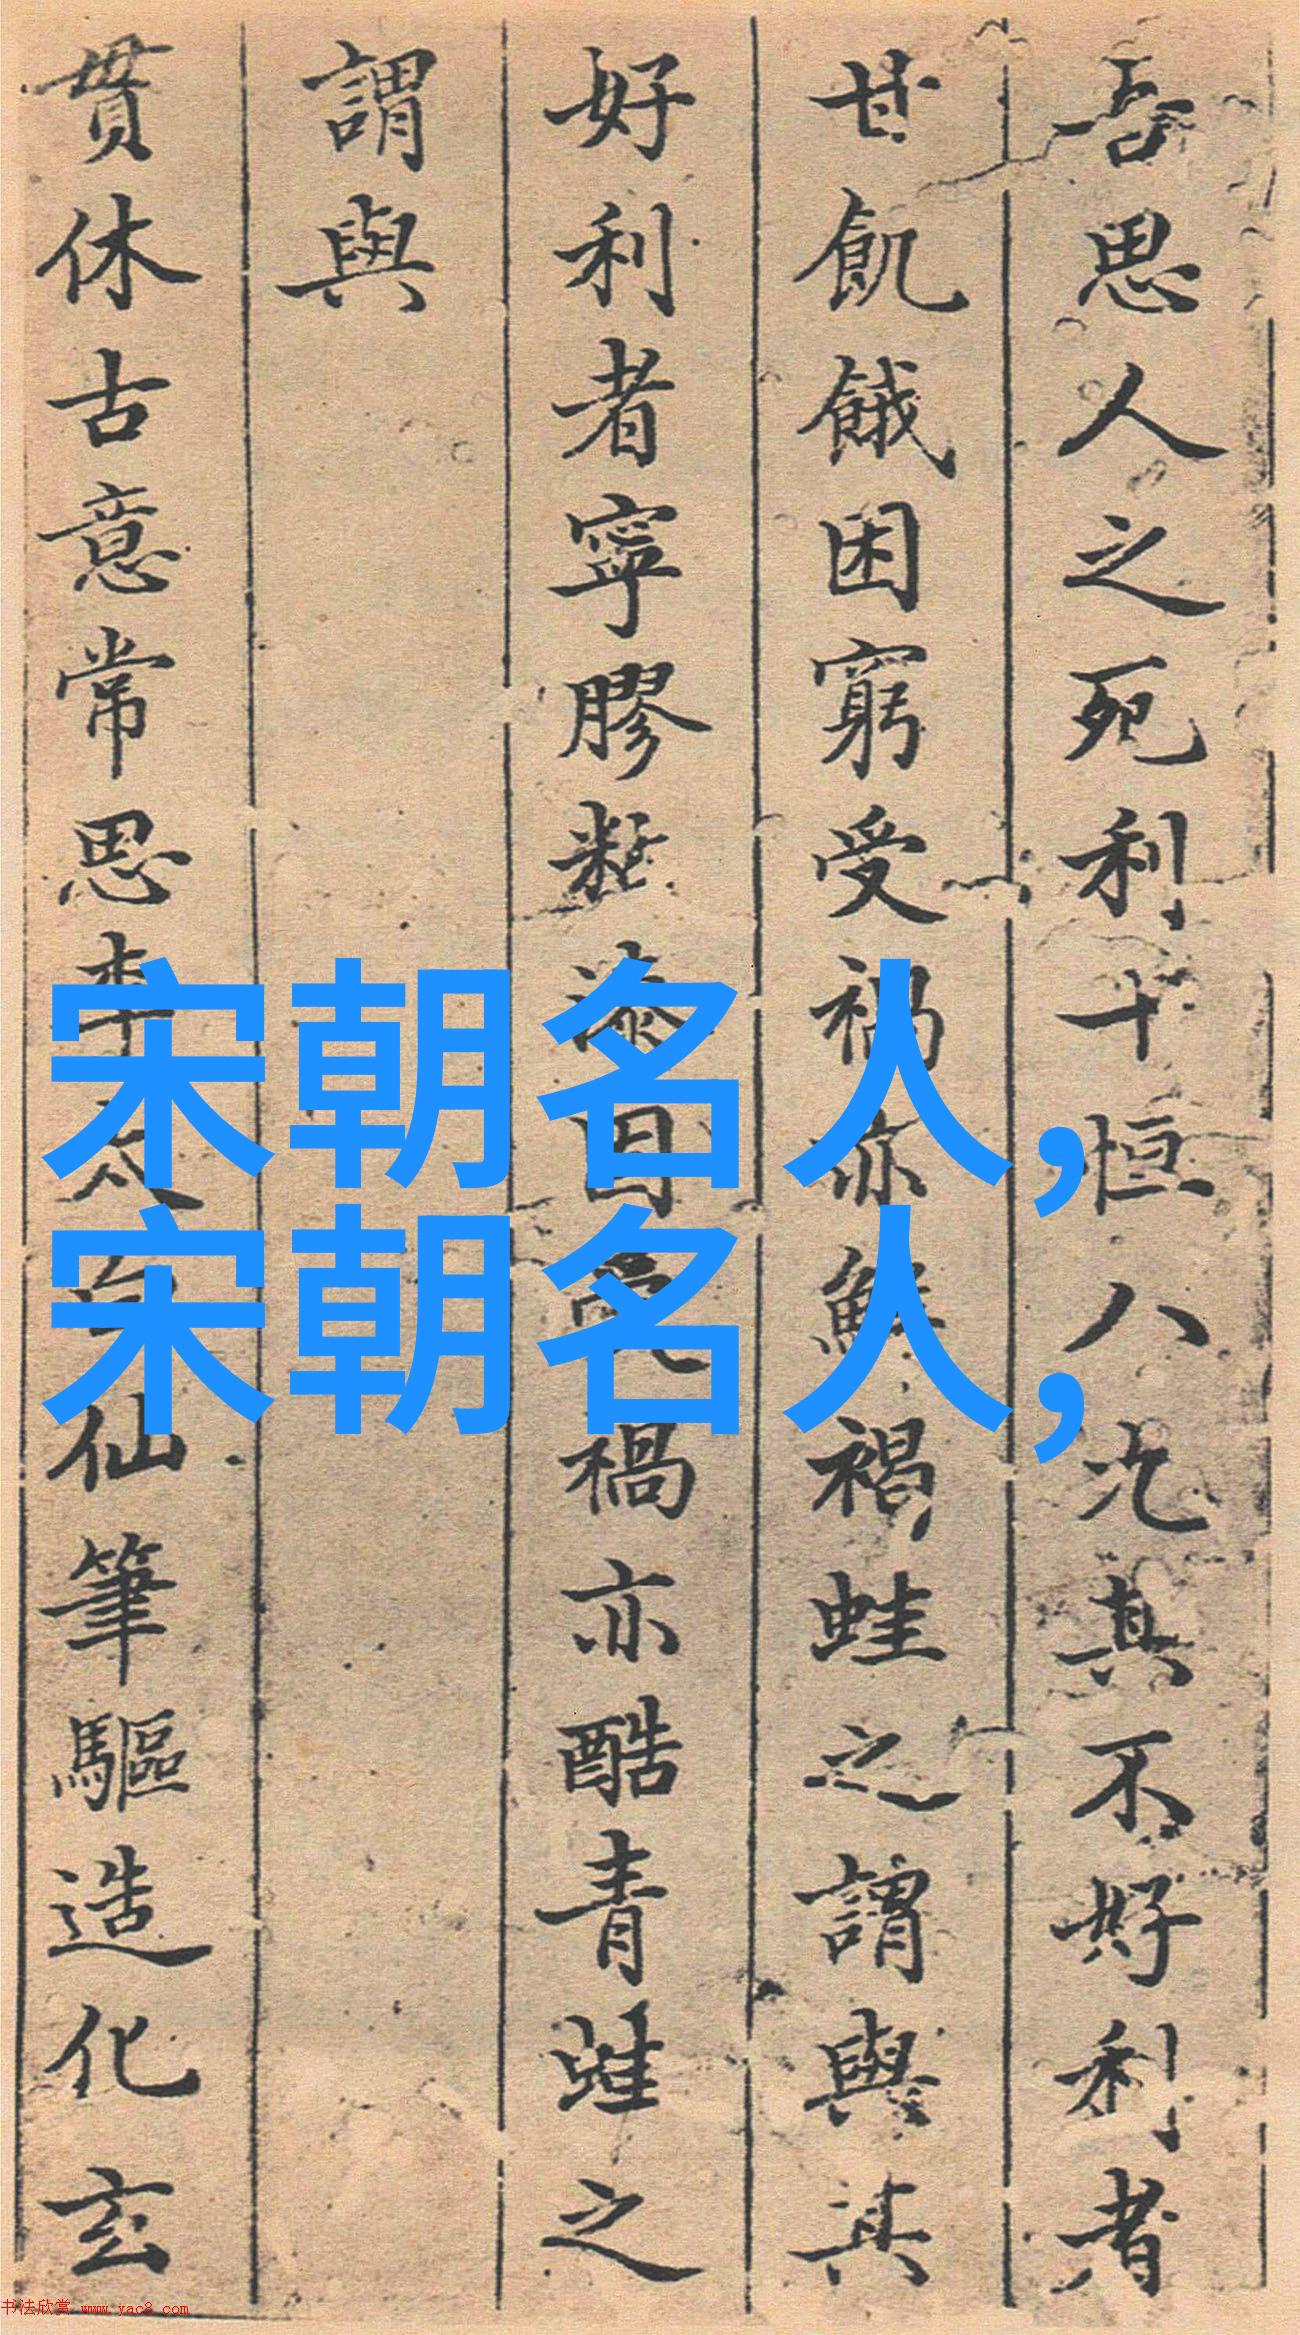 吾思人之死利十恒八九其不好利者
甘飢餓困窮受禍亦鮮褐蛙之謂與其
好利者寧膠粘漆固禍亦酷青蛙之
謂與
貫休古意常思李太白仙筆驅造化玄
宋朝名人,
宋朝名人,
书法欣赏 www.yac8.com